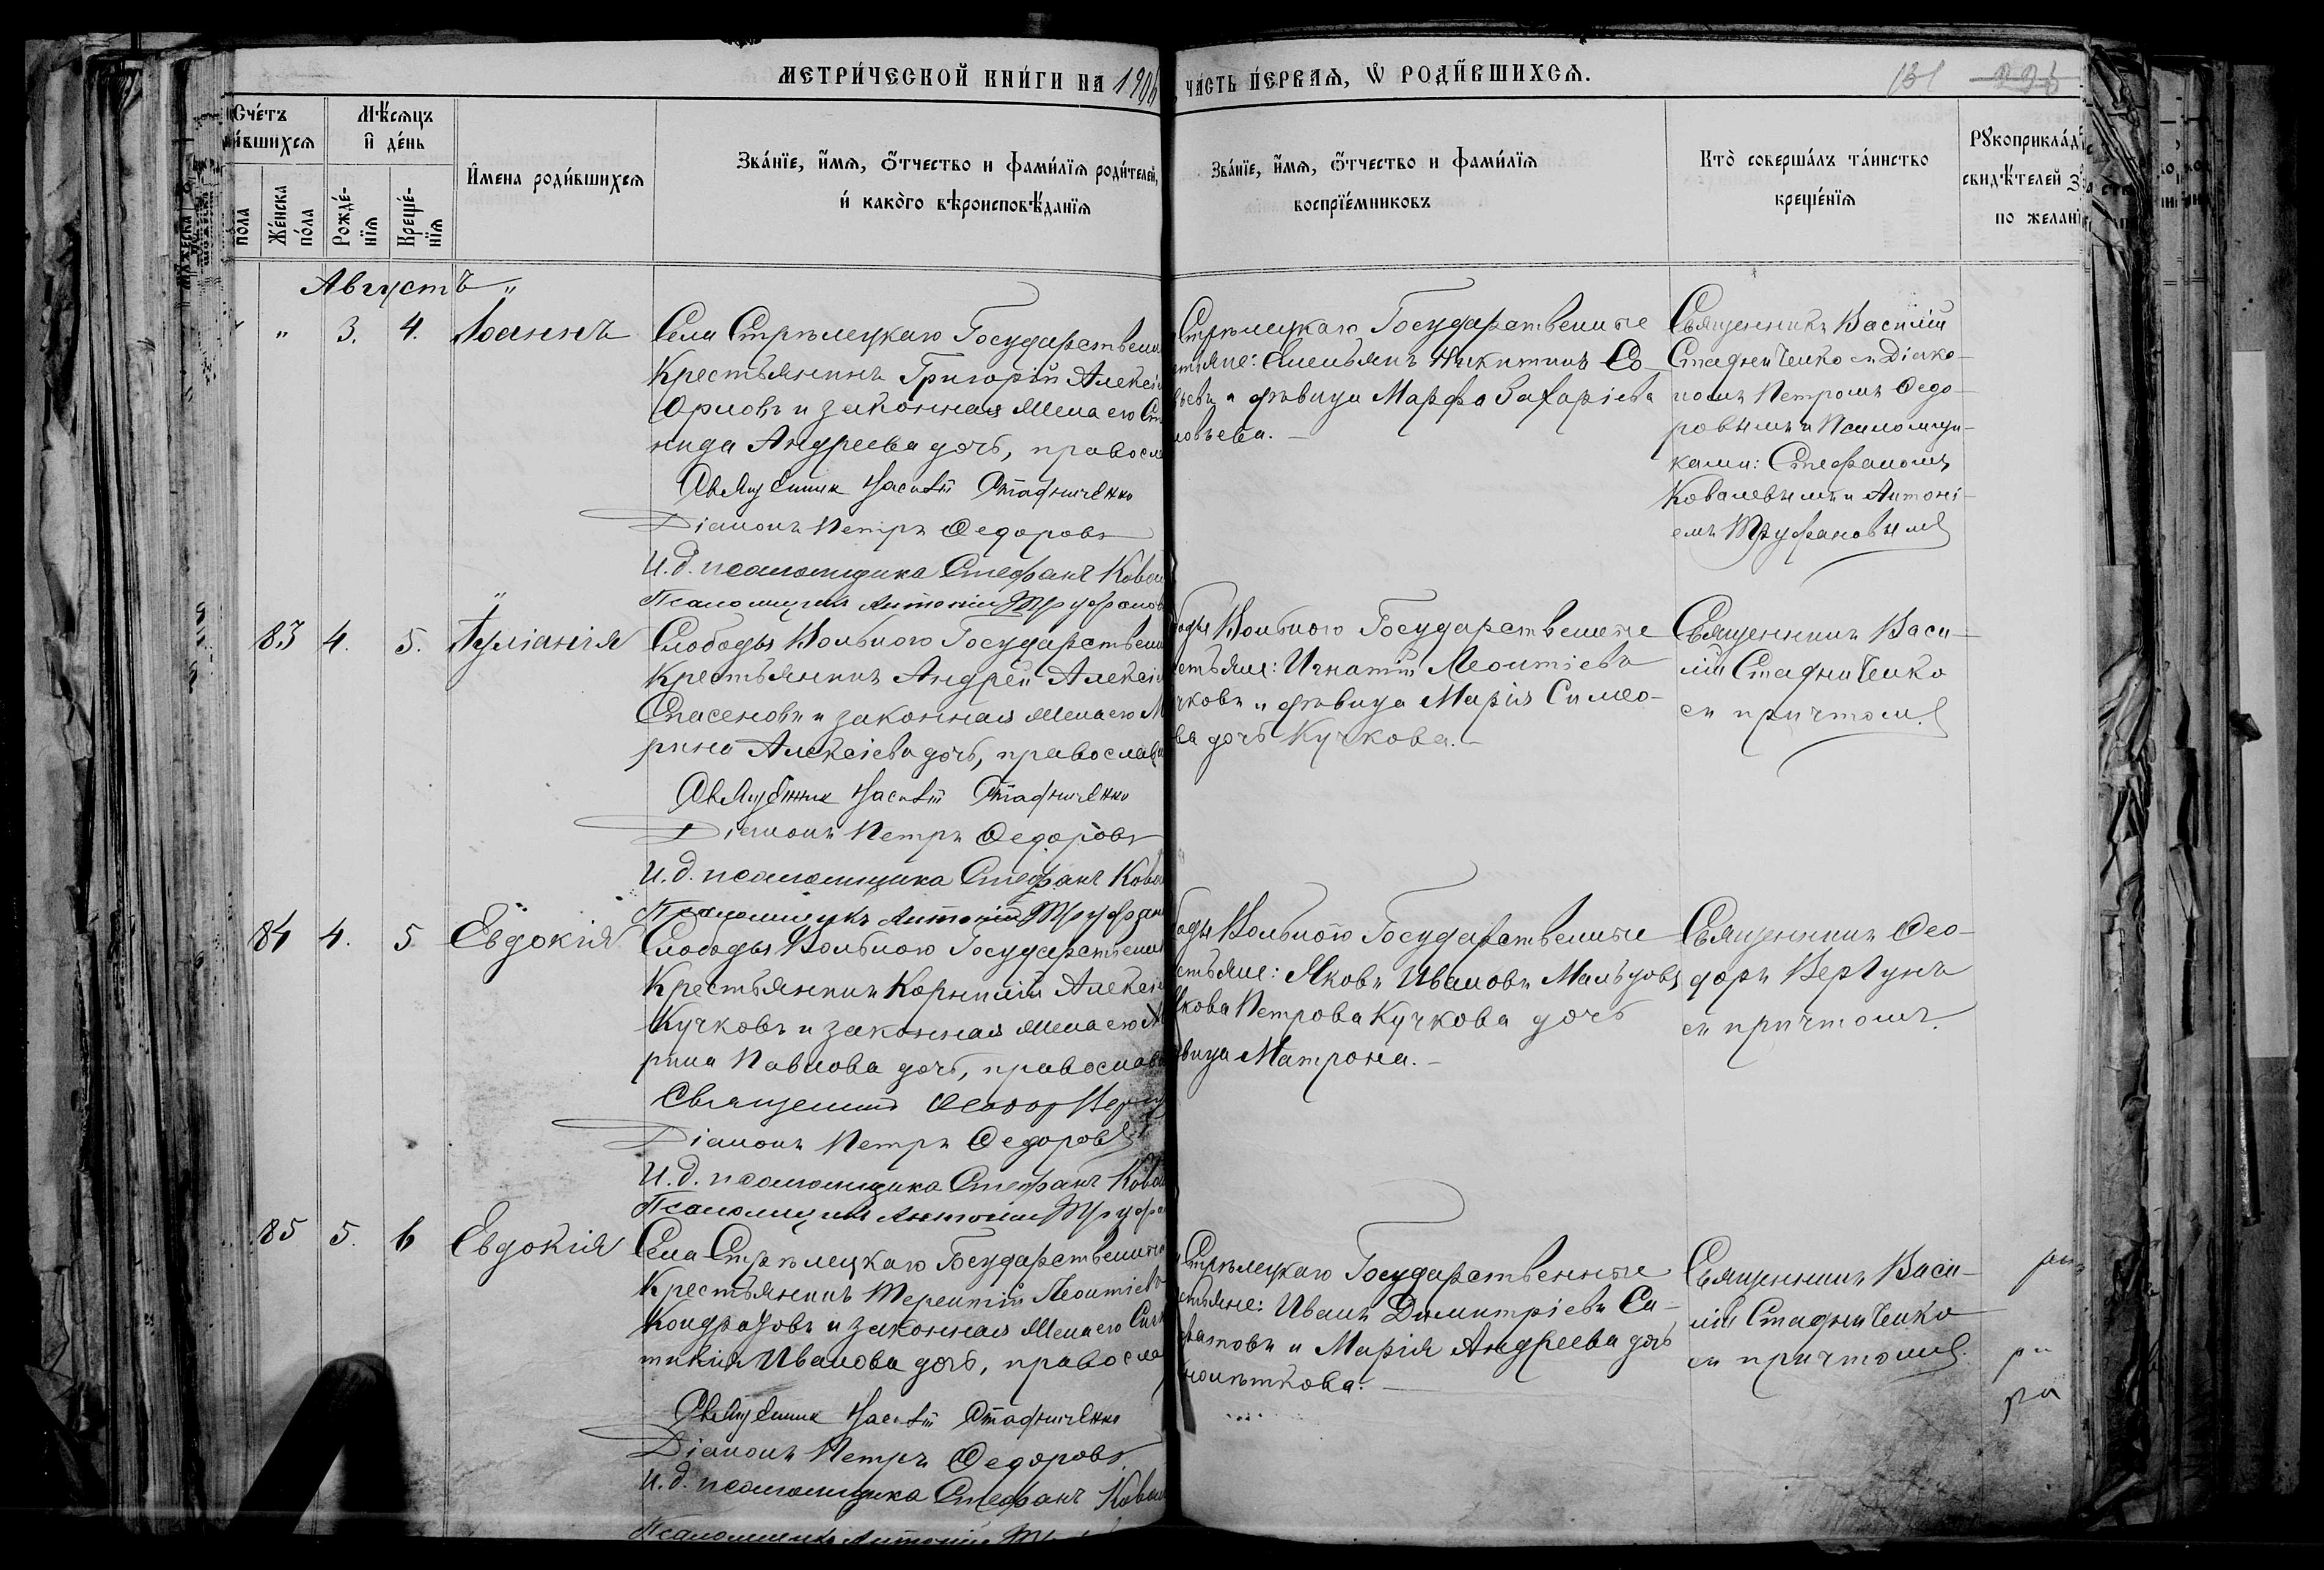 МЕТРИ́ЧЕСКОЙ КНИ́ГИ НА 1906
ЧА́СТЬ ПЕ́РВАЯ, Ѡ҆ РОДИ́ВШИХСЯ.
131
Сче́тъ
Мѣ́сяцъ
и҆ де́нь
И҆мена роди́вшихся
Зва́нїе, и҆́мя, ѻ҆́тчество и фами́лїя роди́телей,
и҆ како́го вѣроисповѣ́данїя
Зва́нїе, и҆́мя, ѻ҆́тчество и фами́лїя
воспрїе́мниковъ
Кто̀ соверша́лъ та́инство
креще́нїя
Рꙋкоприкла́д
свидѣ́телей
по желані
по́ла
Же́нска
по́ла
Рожде́-
нїя
Креще́-
нїя
Августъ
" 3. 4. Іоаннъ
Села Стрѣлецкаго Государствен
Крестьянинъ Григорій Алексі
Орловъ и законная жена его Ст
нида Андреева дочь, правосл
Священник Василій Стадниченко
Діаконъ Петръ Ѳедоровъ
И.д. псаломщика Стефанъ Ковал
Псаломщикъ Антоній Труфанов
Стрѣлецкаго Государственные
стьяне: Емельянъ Никитинъ Со-
вьевъ и дѣвица Марфа Захаріева
ловьева.
Священникъ Василій
Стадниченко съ Діако-
номъ Петромъ Ѳедо-
ровымъ и Псаломщи-
ками: Стефаномъ
Ковалевымъ и Антоні-
емъ Труфановымъ
83 4. 5. Іуліанія
Слободы Вольного Государствен
Крестьянинъ Андрей Алексі
Спасеновъ и законная жена его М
рина Алексіева дочь, православ
Священник Василій Стадниченко
Діаконъ Петръ Ѳедоровъ
И.д. псаломщика Стефанъ Ковал
Псаломщикъ Антоній Труфан
боды Вольного Государственные
стьяне: Игнатій Леонтіевъ
чковъ и дѣвица Марія Симео-
ва дочь Кучкова.
Священникъ Васи-
лій Стадниченко
съ причтомъ.
84 4. 5 Евдокія
Слободы Вольного Государствен
Крестьянинъ Корнилій Алексі
Кучковъ и законная жена его М
рина Павлова дочь, православ
Священникъ Ѳеодор Вергу
Діаконъ Петръ Ѳедоровъ
И.д. псаломщика Стефанъ Ковал
Псаломщикъ Антоній Труфа
боды Вольного Государственные
стьяне: Яковъ Ивановъ Мальцовъ
Якова Петрова Кучкова дочь
вица Матрона.
Священникъ Ѳео-
доръ Вергунъ
съ причтомъ.
85 5. 6 Евдокія
Села Стрѣлецкаго Государственны
Крестьянинъ Терентій Леонтіевъ
Кондратовъ и законная жена его Син
тикія Иванова дочь, правосла
Священник Василій Стадниченко
Діаконъ Петръ Ѳедоровъ
И.д. псаломщика Стефанъ Ковал
Псаломщикъ Антоній
Стрѣлецкаго Государственные
стьяне: Иванъ Димитріевъ
и Марія Андреева дочь
Священникъ Васи-
лій Стадниченко
съ причтомъ.